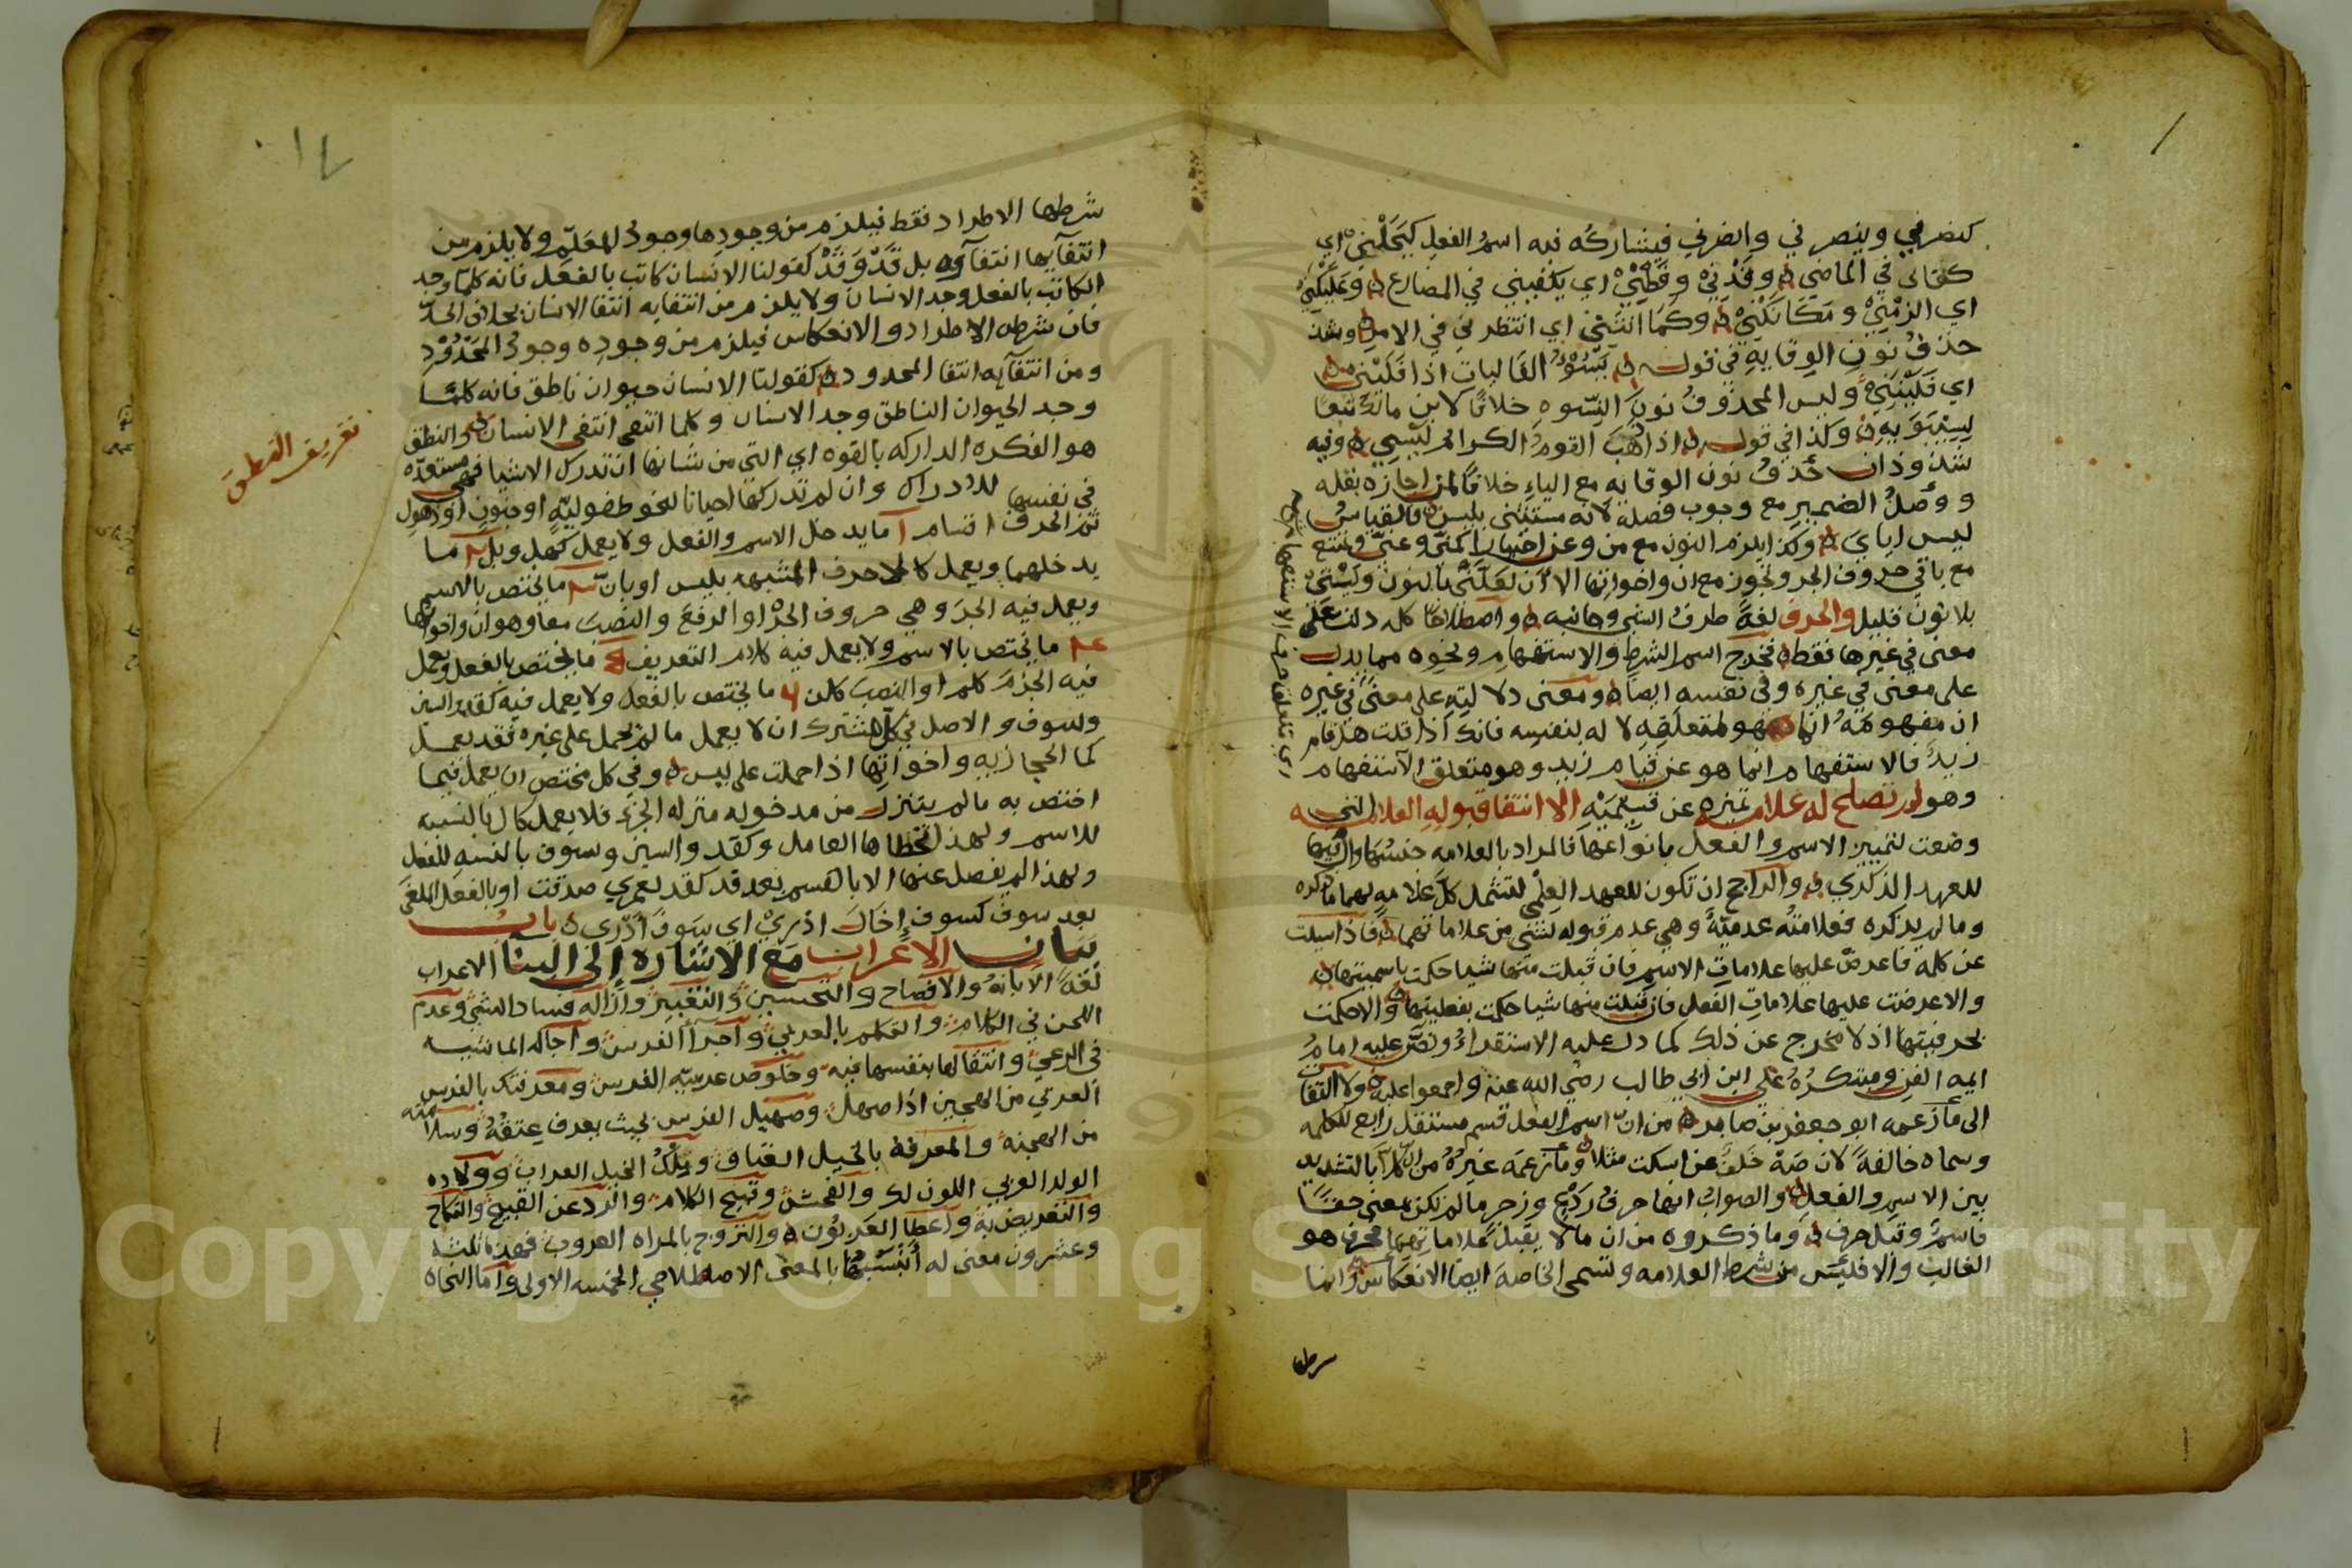 كنصرني وينصرني وانصرني فيشاركه فيه اسمُ الفعلِ كبَجَلْني اي
كفاني في الماضي وقَدْنِيْ وقَطْنِيْ اي يكفيني في المضارع وعَلَيْكَنِيْ
اي الزمْنِيْ ومَكَانَكَنِيْ وكَمَا انْتَنِي اي انتظرني في الامر وشذ
حذفُ نونِ الوقايةِ في قوله يَسُوْءُ الفَاليات اذا فَلَيْني
اي فَلَيْنَنِيْ وليس المحذوفُ نونَ النسوه خلافًا لابن مالك تبعًا
لسِيْبَوَيهِ وكذا في قوله اذ ذهَبَ القومُ الكرام لَيْسِي وفيه
شذوذان حَذفُ نون الوقايه مع الياءِ خلافًا لمن اجازه بقله
ووَصلُ الضمير مع وجوب فصله لانه مستثنى بليس فالقياسُ
ليس اياي وكذا يلزم النون مع من وعن اختيارا كمنّي وعنّي ويمتنع
مع باقي حروف الجر وتجوز مع ان واخواتِها الا أن لعَلَّنِيْ بالنون ولَيْتِيْ
بلا نون قليل والحرف لغةً طرفُ الشي وجانبه واصطلاحًا كلمه دلت على
معنى في غيرها فقط فخرج اسم الشرط والاستفهامِ ونحوِه مما يدل
على معنى في غيره وفي نفسه ايضًا ومعنى دلالتِهِ على معنًى في غيره
ان مفهومَهُ انما هو لمتعلَّقِهِ لا له بنفسه فانك اذا قلت هل قام
زيدٌ فالاستفهام انما هو عن قيام زيد وهو متعلق الاستفهام
وهو لم تصلح له علامه تميزه عن قسيمَيْهِ الا انتفا قبولِهِ العلامه التي
وضعت لتمييز الاسم والفعل بانواعها فالمراد بالعلامه جنسُها وال فيها
للعهد الذكري والراجح ان تكون للعهد العِلمي لتشمل كلَّ علامهٍ لهما ما ذكره
وما لم يذكره فعلامتُه عدميّةٌ وهي عدم قبوله لشي من علاماتهما فاذا سيلت
عن كلمه فاعرضْ عليها علاماتِ الاسم فان قبلت منها شيا حكمت باسميتها
والا عرضت عليها علامات الفعل فان قبلت منها شيا حكمت بفعليتها والا حكمت
بحرفيتها اذ لا مخرج عن ذلك كما دل عليه الاستقراءُ ونصَّ عليه امامُ
ايمه الفن ومبتكرُهُ علي ابن ابي طالب رضي الله عنه واجمعوا عليه ولا التفا
الى ما زعمه ابو جعفر بن صابر من انّ اسم الفعل قسم مستقل رابع للكلمه
وسماه خالفةً لان صَهْ خَلفٌ عن اسكت مثلا وما زعمَه غيرُهُ من ان كلا بالتشديد
بين الاسم والفعل والصواب انها حرفُ رَدْعٍ وزجرٍ ما لم تكن بمعنى حقًا
فاسمٌ وقيل حرف وما ذكروه من ان ما لا يقبل علاماتهما فحرف هو
الغالب والا فليس من شرط العلامه وتسمى الخاصه ايضا الانعكاس وانما
شرطها
شرطها الاطراد فقط فيلزم من وجودِها وجودُ المعَلَّمِ ولا يلزم من
انتفآيها انتفآوه بل قَدْ وَقَدْ كقولنا الانسان كاتب بالفعل فانه كلما وجد
الكاتب بالفعل وجد الانسان ولا يلزم من انتفايه انتفا الانسان بخلاف الحدّ
فان شرطه الاطراد والانعكاس فيلزم من وجودِه وجودُ المَحْدُوْدِ
ومن انتفآيه انتفا المحدود كقولنا الانسان حيوان ناطق فانه كلمّا
وجد الحيوان الناطق وجد الانسان وكلما انتفى انتفى الانسان والنطق
هو الفكره الداركه بالقوه اي التي من شانها ان تدرك الاشيا فهي مستعدّه
في نفسها للادراك وان لم تدركها احيانا لنحو طفوليّهٍ او جنونٍ او ذهول
ثم الحرف اقسام آ ما يدخل الاسم والفعل ولا يعمل كهل وبل ٢ ما
يدخلهما ويعمل كالاحرف المشبهه بليس او بان ٣ ما يختص بالاسم
ويعمل فيه الجرَ وهي حروف الجرّ او الرفعَ والنصبَ معا وهو ان واخواتها
٤ ما يختص بالاسم ولا يعمل فيه كلام التعريف ٥ ما يختص بالفعل ويعمل
فيه الجزمَ كلم او النصبَ كلن ٦ ما يختص بالفعل ولا يعمل فيه كقد والسين
وسوف والاصل في كل مشترك ان لا يعمل ما لم يحمل على غيره فقد يعمل
كما الحجازيه واخواتِها اذا حملت على ليس وفي كل مختص ان يعمل فيما
اختص به ما لم يتنزل من مدخوله منزله الجزء فلا يعمل كال بالنسبه
للاسم ولهذا تخطاها العامل وكقد والسين وسوف بالنسبهِ للفعل
ولهذا لم يفصل عنها الا بالقسم بعد قد كقد لعمري صدقت او بالفعل الملغى
بعد سوف كسوف إخَالَ ادْرِيْ اي سَوفَ أَدْرِى بابُ
بيان الاعراب مع الاشاره إلى البنا الاعراب
لغةً الابانهُ والافصاح والتحسين والتغيير وازاله فساد الشي وعدم
اللحن في الكلام والتكلم بالعربي واجرآ الفرس واجاله الماشيه
في الرعي وانتقالها بنفسها فيه وخلوص عربيّه الفرس ومعرفتك بالفرس
العربي من الهجين اذا صهل وصهيل الفرس بحيث يعرف عِتقُهُ وسلامته
من الهجنه والمعرفة بالخيل العتاق ومِلْكُ الخيل العراب وولاده
الولد العربي اللون لك والفحش وقبيح الكلام والرد عن القبيح والنكاح
والتعريض به واعطا العَربُون والتزوج بالمراه العروب فهذه ثلثه
وعشرون معنى له أَنْسَبُها بالمعنى الاصطلاحي الخمسه الاولى واما النحاه
تعريف النطق